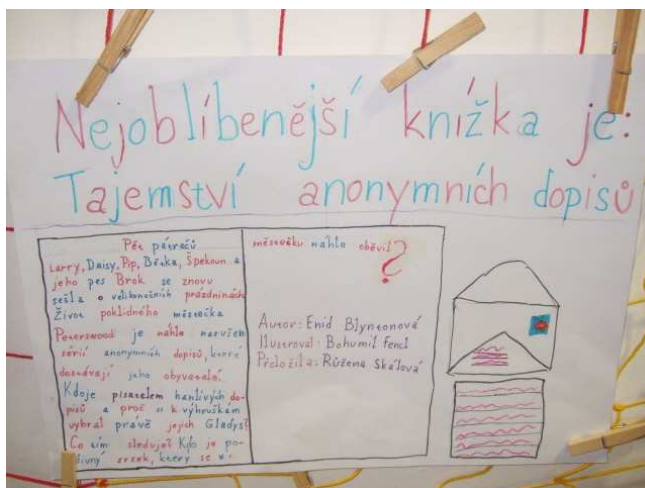 Nejoblíbenější knížka je:
Tajemství anonymních dopisů
Pět pátračů
Larry, Daisy, Pip, Bětka, Špekoun a
jeho pes Brok se znovu
sešla o velikonočních prázdninách
Život poklidného městečka
Peterswood je náhle narušen
sérií anonymních dopisů, které
dostávají jeho obyvatelé.
Kdo je pisatelem hanlivých do-
pisů a proč si k výhružkám
vybral právě jejich Gladys?
Co tím sleduje? Kdo je po-
divný zrzek, který se v
městečku náhle objevil?
Autor: Enid Blyntonová
Ilustroval: Bohumil Fencl
Přeložila: Růžena Skálová